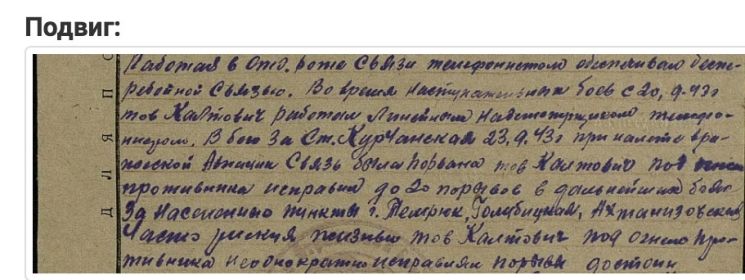 Подвиг:
Работая в Отд. роте Связи телефонистом обеспечивал беспе-
ребойной Связью. Во время наступательных боев с 20.9.43г
тов Калтович работал Линейным Надсмотрщиком телефо-
нистом. В бою За Ст. Курчанская 23.9.43г при налете вра-
жеской Авиации Связь была порвана тов Калтович под огнем
противника исправил до 20 порывов в дальнейших боях
За Населенные пункты г. Темрюк, Голубицкая, Ахтанизовская
Часто рискуя жизнью тов Калтович под огнем про-
тивника неоднократно исправлял порывы достоин
ДЛЯ П